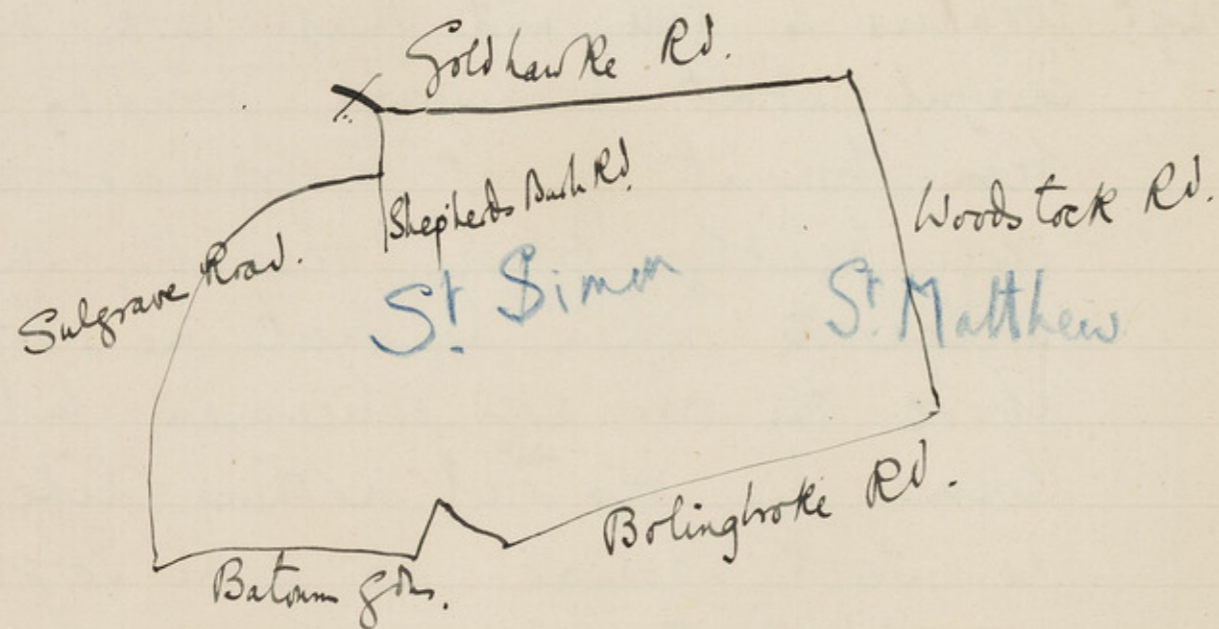 Goldhawke Rd.
Shepherds Bush Rd.
Woodstock Rd.
Sulgrave Road.
St Simon
St. Matthew
Bolingbroke Rd.
Batoum Gdns.